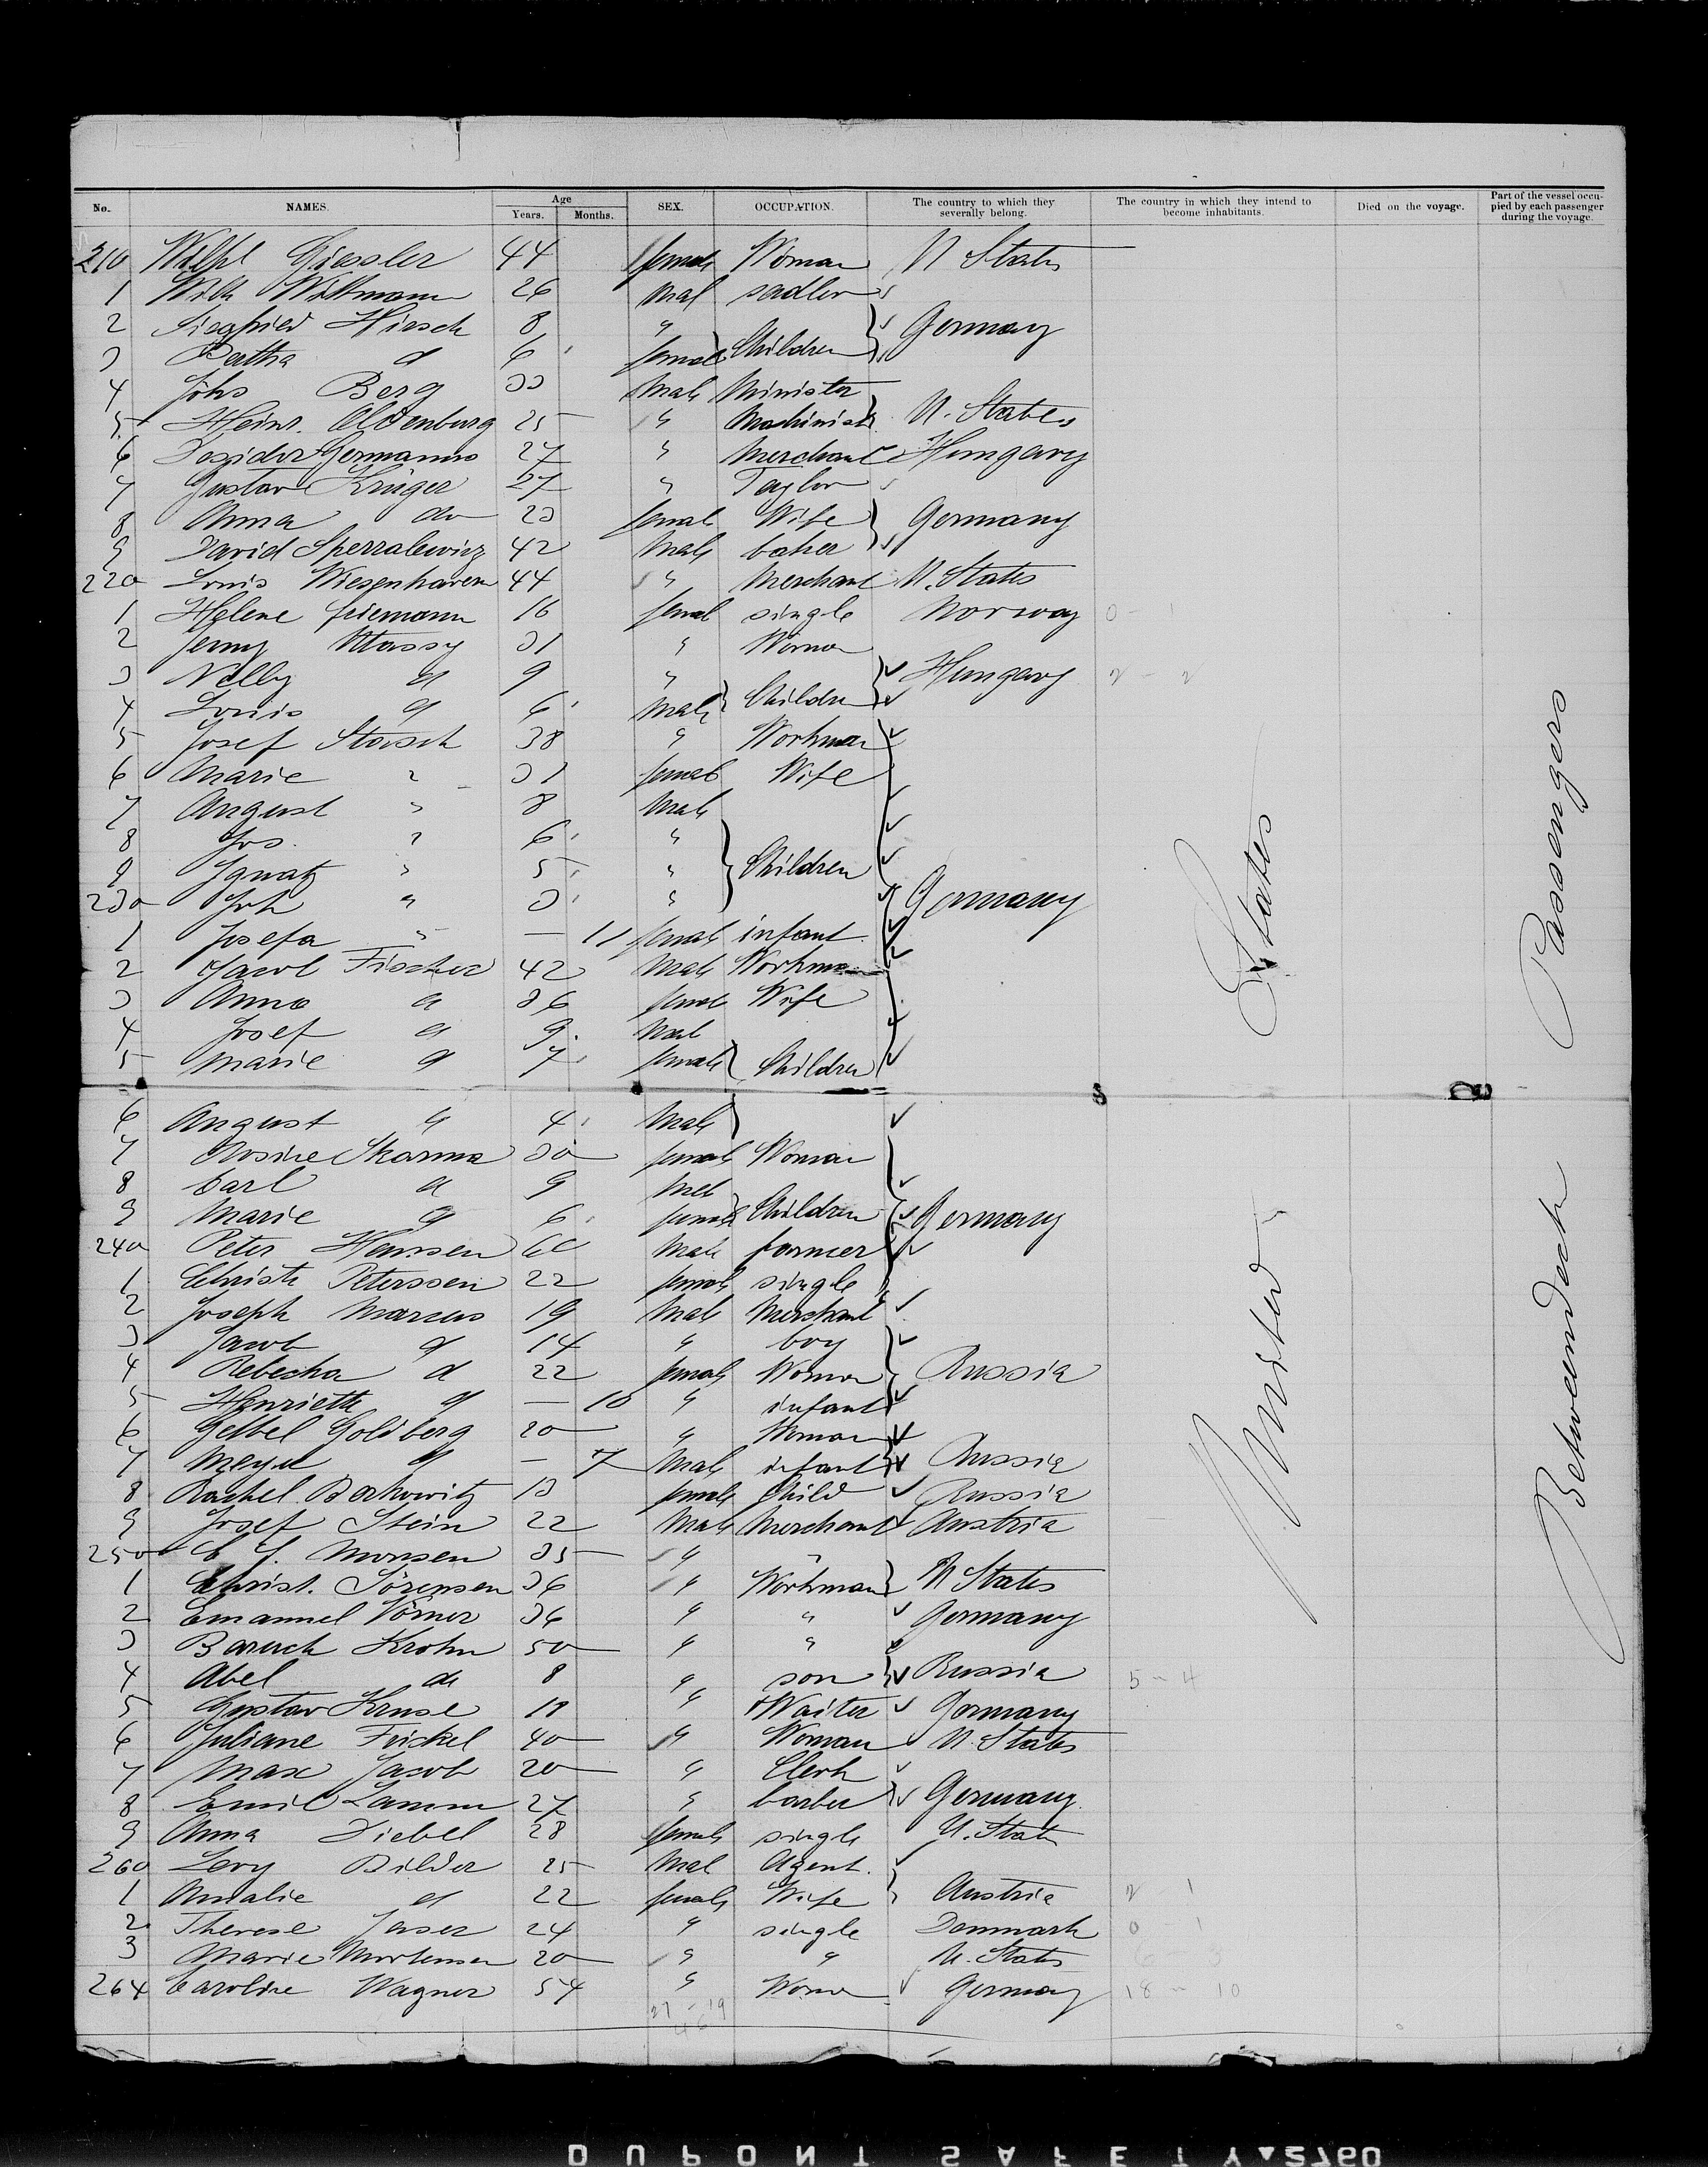 No. NAMES. Age Years. Months. SEX. OCCUPATION. The country to which they severally belong. The country in which they intend to become inhabitants. Died on the voyage. Part of the vessel occupied by each passenger during the voyage.
210 Giessler 44 female Woman U States
1 Wilh Wittmann 26 mal sadler
2 Siegfried Hirsch 8 " Germay
3 Bertha d 6 female Children
4 Johs Berg 33 Male Minister
5 Heinr. Oldenburg 25 " Machinist U. States
6 Germanus 27 " Merchant Hungary
7 Gustav Krüger 27 " Taylor
8 Anna do 23 female Wife Germany
9 David 42 Male baker
220 Louis Wiesenhaven 44 " Merchant U. States
1 Helene 16 femal single Norway 0 - 1
2 Jenny 31 " Woman
3 Nelly d 9 " Hungary 2 - 2
4 Louis d 6 Male Children
5 Josef Storch 38 " Workman
6 Marie " 31 femal Wife
7 August " 8 Male
8 Jos. " 6 "
9 Ignatz " 5 " Children
230 Joh " 3 " Germany
1 Josefa " — 11 female infant
2 Jacob Fischer 42 Male Workman
3 Anna d 36 female Wife
4 Josef d 9 Mal
5 Marie d 7 female Children
6 August d 4 Male
7 Rosine Skarma 30 female Woman
8 Carl d 9 Mal
9 Marie d 6 female Children Germany
240 Peter Hanssen 60 Male farmer
1 Christe Peterssen 22 female single
2 Joseph Marcus 19 Male Merchant
3 Jacob d 14 " boy
4 Rebecka d 22 female Woman Russia
5 Henriette d — 10 " infant
6 Gettel Goldberg 20 " Woman
7 Meyer d — 7 Male infant Russia
8 Rachel Berkowitz 10 female Child Russia
9 Josef Stein 22 Male Merchant Austria
250 C J. Monsen 35 " "
1 Christ. Sörensen 36 " Workman U States
2 Emanuel Körner 36 " " Germany
3 Baruch Krohn 50 " "
4 Abel do 8 " son Russia 5 - 4
5 Gustav Kruse 18 " Waiter Germany
6 Juliane Frickel 40 " Woman U. States
7 Max Jacob 20 " Clerk
8 Emil Lamm 27 " barber Germany
9 Anna Diebel 28 female single U. States
260 Levy Bilder 25 Mal Agent.
1 Amalie d 22 female Wife Austria 2 1
2 Therese Jaser 24 " single Denmark 0 1
3 Marie Mortensen 20 " " U. States 6 - 3
264 Caroline Wagner 54 " Woman Germay 18 - 10
27 - 19
46
United States
Betweendeck Passengers
DUPONT SAFETY 2760